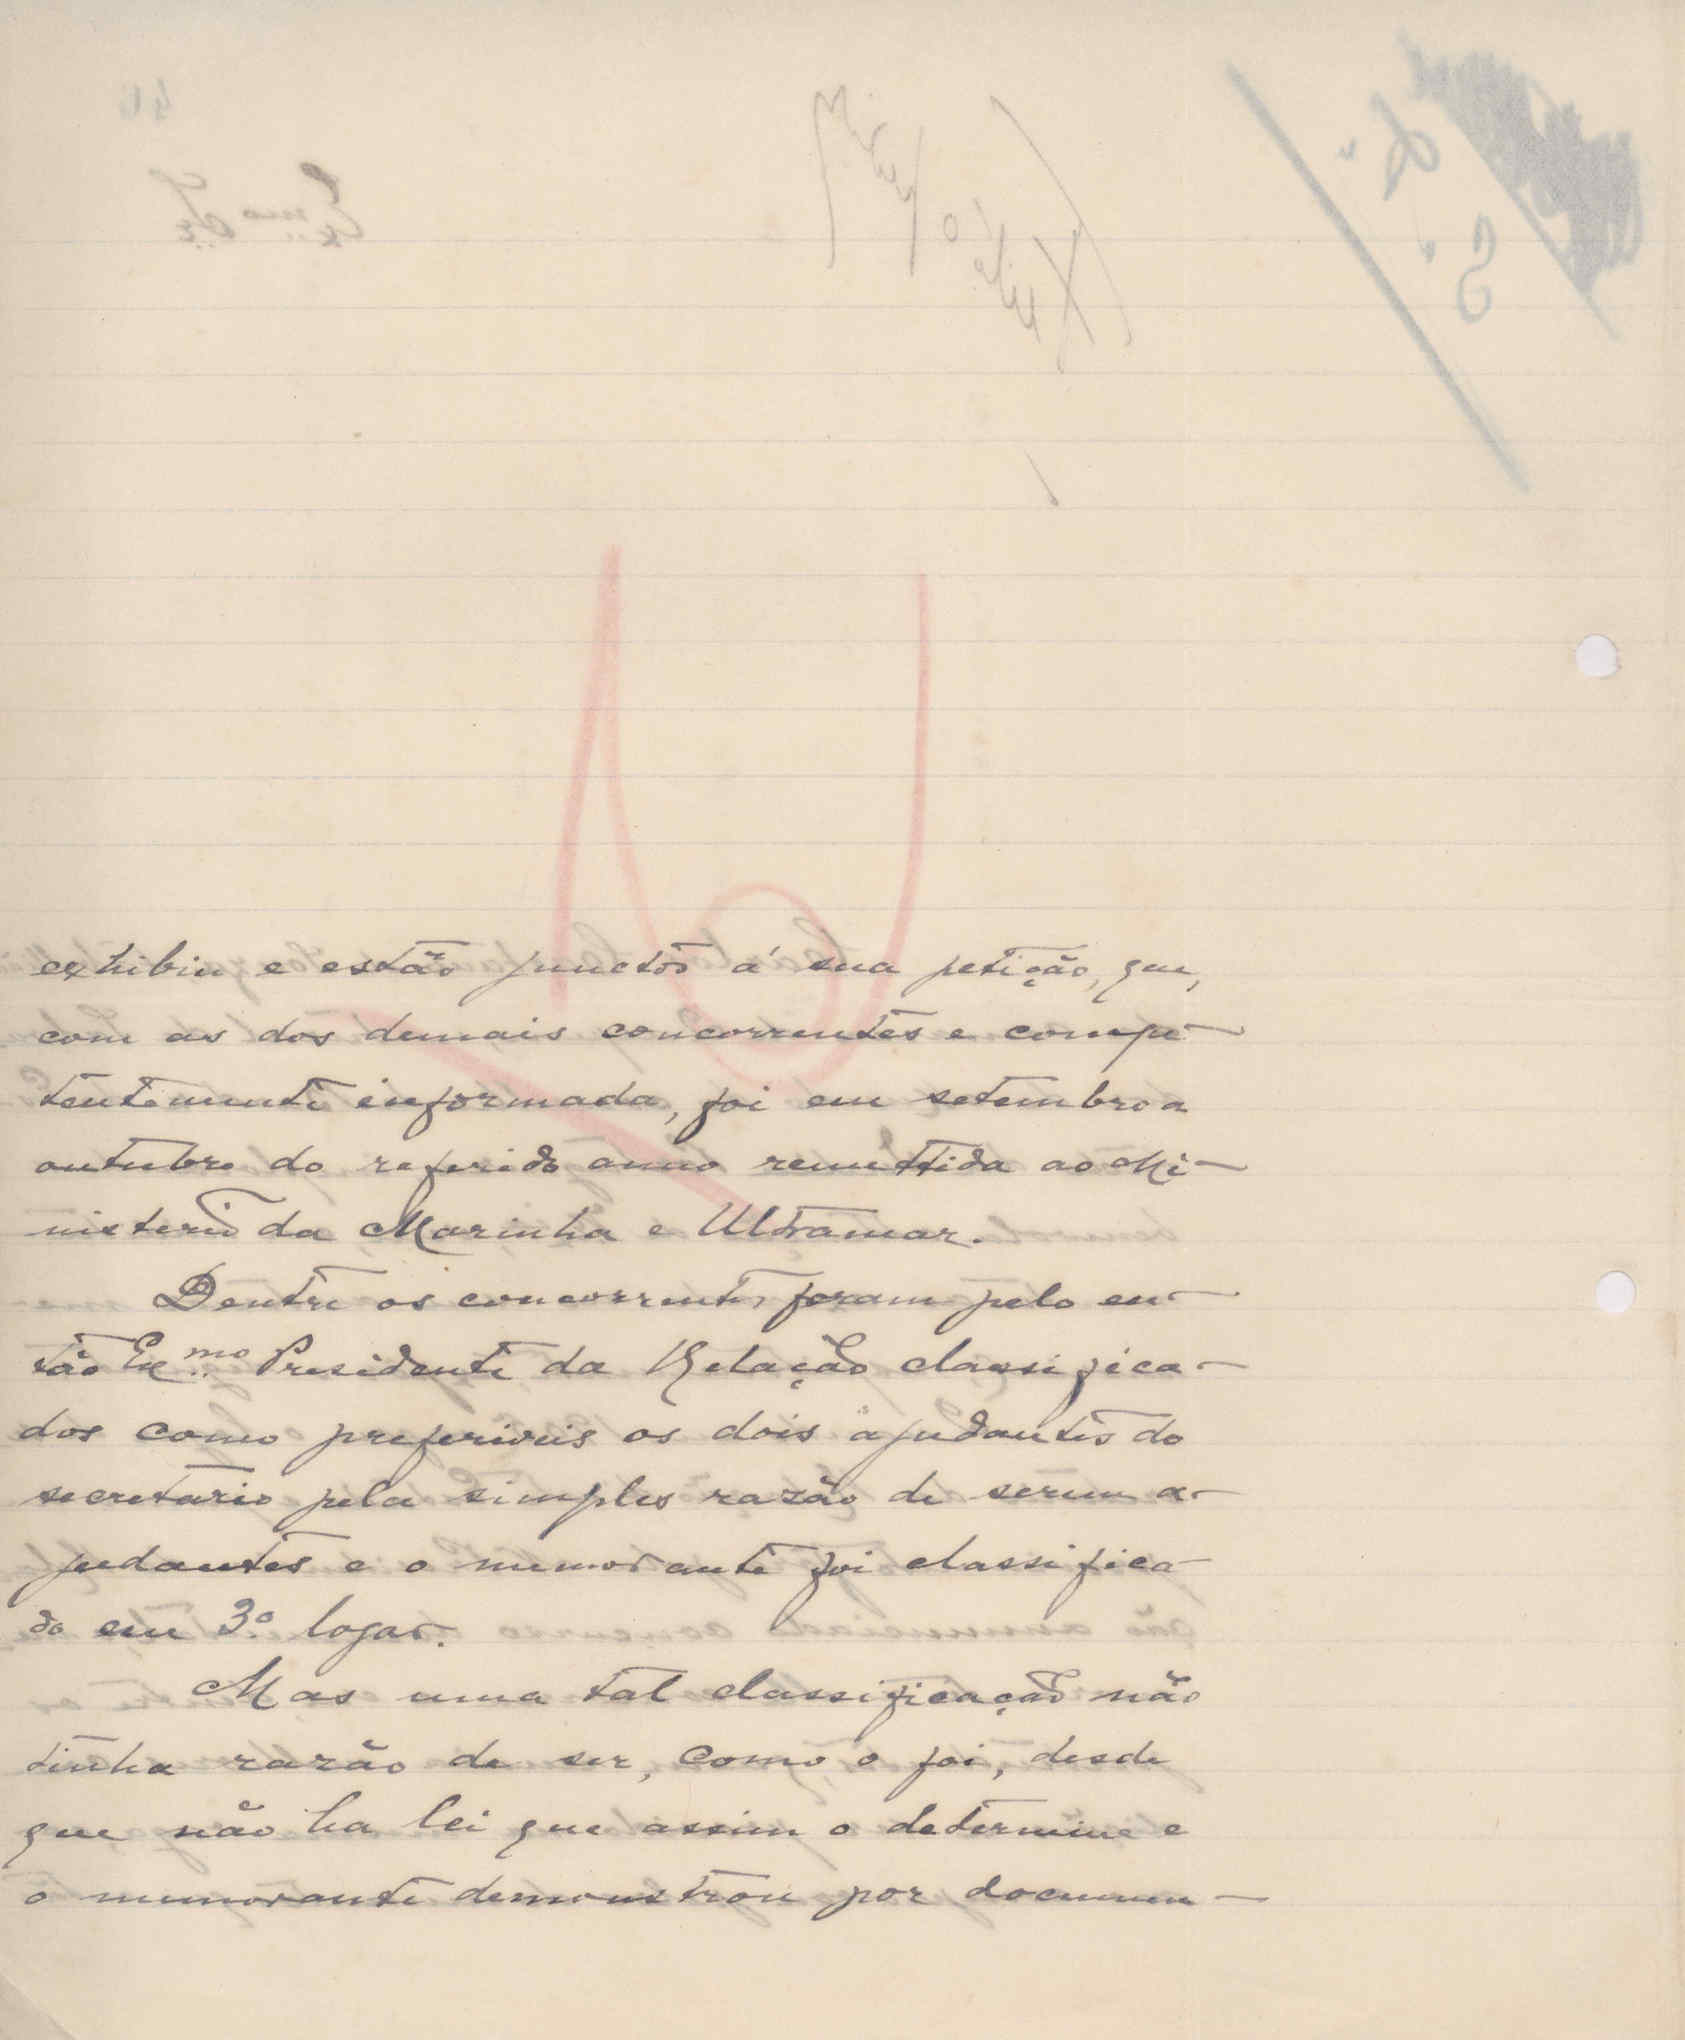 exhibiu e estão junctos á sua petição, que,
com as dos demais concorrentes e compe-
tentemente informada, foi em setembro a
outubro do referido anno remettida ao Mi-
nisterio da Marinha e Ultramar.
Dentre os concorrentes foram pelo en-
tão Ex.mo Presidente da Relação classifica-
dos como preferiveis os dois ajudantes do
secretario pela simples razão de serem a-
judantes e o memorante foi classifica-
do em 3.º logar.
Mas uma tal classificação não
tinha razão de ser, como o foi, desde
que não ha lei que assim o determine e
o memorante demonstrou por documen-